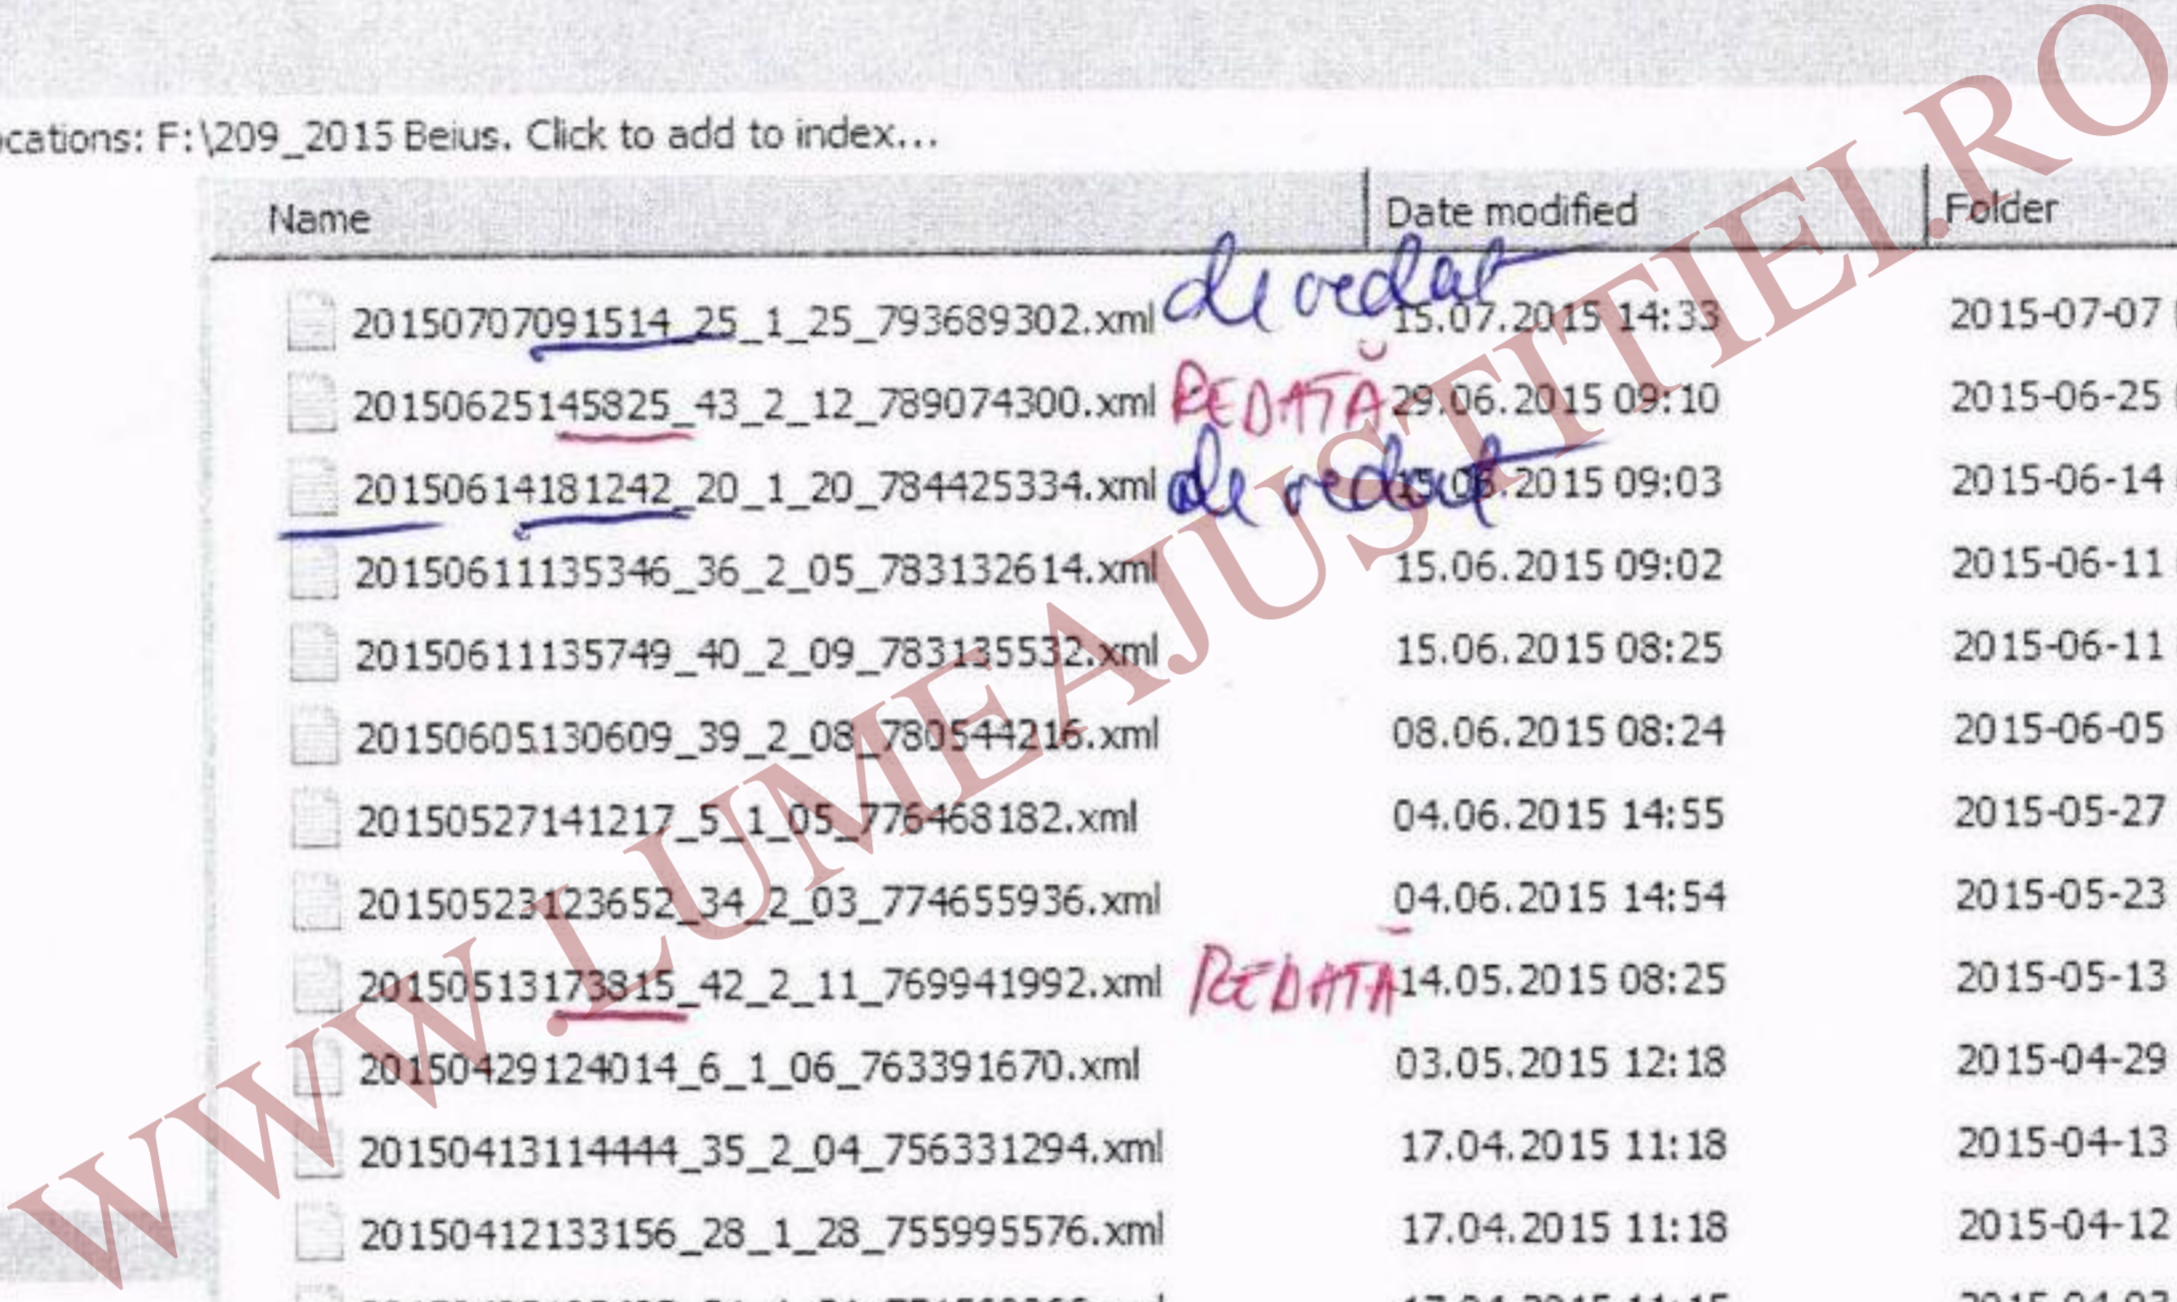 ocations: F:\209_2015 Beius. Click to add to index...
Name Date modified Folder
20150707091514_25_1_25_793689302.xml de redat 15.07.2015 14:33 2015-07-07
20150625145825_43_2_12_789074300.xml REDATĂ 29.06.2015 09:10 2015-06-25
20150614181242_20_1_20_784425334.xml de redat 15.06.2015 09:03 2015-06-14
20150611135346_36_2_05_783132614.xml 15.06.2015 09:02 2015-06-11
20150611135749_40_2_09_783135532.xml 15.06.2015 08:25 2015-06-11
20150605130609_39_2_08_780544216.xml 08.06.2015 08:24 2015-06-05
20150527141217_5_1_05_776468182.xml 04.06.2015 14:55 2015-05-27
20150523123652_34_2_03_774655936.xml 04.06.2015 14:54 2015-05-23
20150513173815_42_2_11_769941992.xml REDATĂ 14.05.2015 08:25 2015-05-13
20150429124014_6_1_06_763391670.xml 03.05.2015 12:18 2015-04-29
20150413114444_35_2_04_756331294.xml 17.04.2015 11:18 2015-04-13
20150412133156_28_1_28_755995576.xml 17.04.2015 11:18 2015-04-12
WWW.LUMEAJUSTITIEI.RO